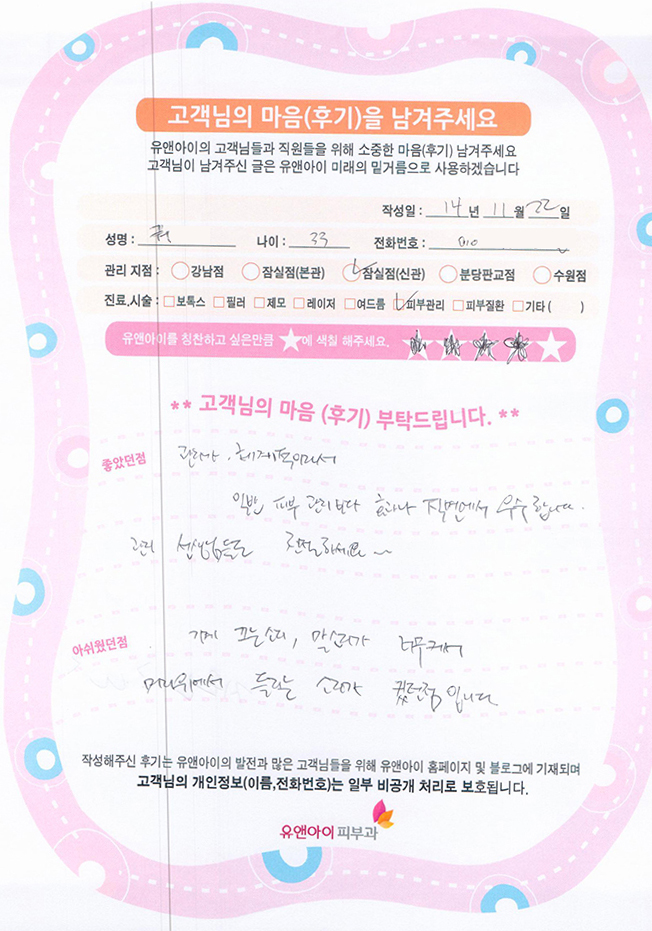 고객님의 마음(후기)을 남겨주세요
유앤아이의 고객님들과 직원들을 위해 소중한 마음(후기) 남겨주세요
고객님이 남겨주신 글은 유앤아이 미래의 밑거름으로 사용하겠습니다
작성일 : 14 년 11 월 22 일
성명 : 나이 : 33 전화번호 : 010
관리 지점 : 강남점 잠실점(본관) 잠실점(신관) 분당판교점 수원점
진료,시술 : 보톡스 필러 제모 레이저 여드름 피부관리 피부질환 기타 ( )
유앤아이를 칭찬하고 싶은만큼 ★에 색칠 해주세요.
** 고객님의 마음 (후기) 부탁드립니다. **
좋았던점 관리가 체계적이라서
일반 피부 관리보다 효과나 측면에서 우수합니다.
관리 선생님들도 친절하세요~
아쉬웠던점 기계 소리, 말소리가 너무커서
머리위에서 들리는 소리가 컸던점 입니다
작성해주신 후기는 유앤아이의 발전과 많은 고객님들을 위해 유앤아이 홈페이지 및 블로그에 기재되며
고객님의 개인정보(이름,전화번호)는 일부 비공개 처리로 보호됩니다.
유앤아이피부과